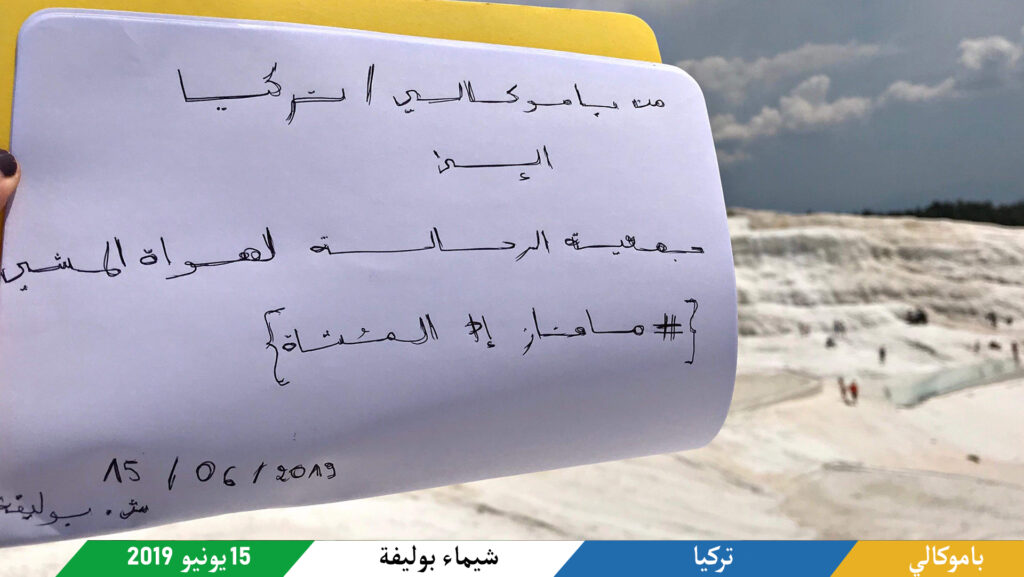 من باموكالي / تركيا
إلى
جمعية الرحالة لهواة المشي
{# مافاز إلا المُشاة}
15 / 06 / 2019
ش. بوليفة
باموكالي
تركيا
شيماء بوليفة
15 يونيو 2019